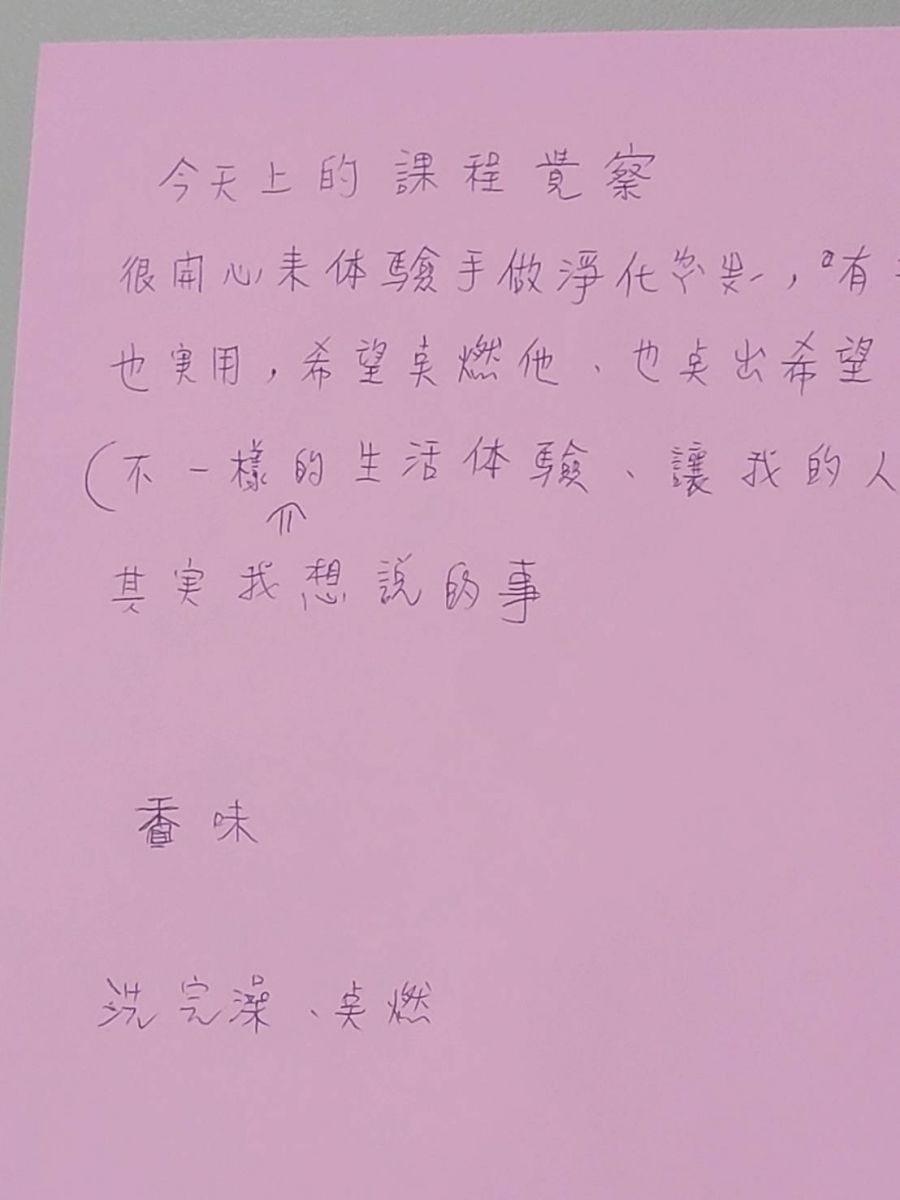 今天上的課程覺察
很開心来体驗手做淨化,有
也実用,希望点燃他、也点出希望
(不一樣的生活体驗、讓我的人
其実我想説的事
香味
洗完澡、点燃